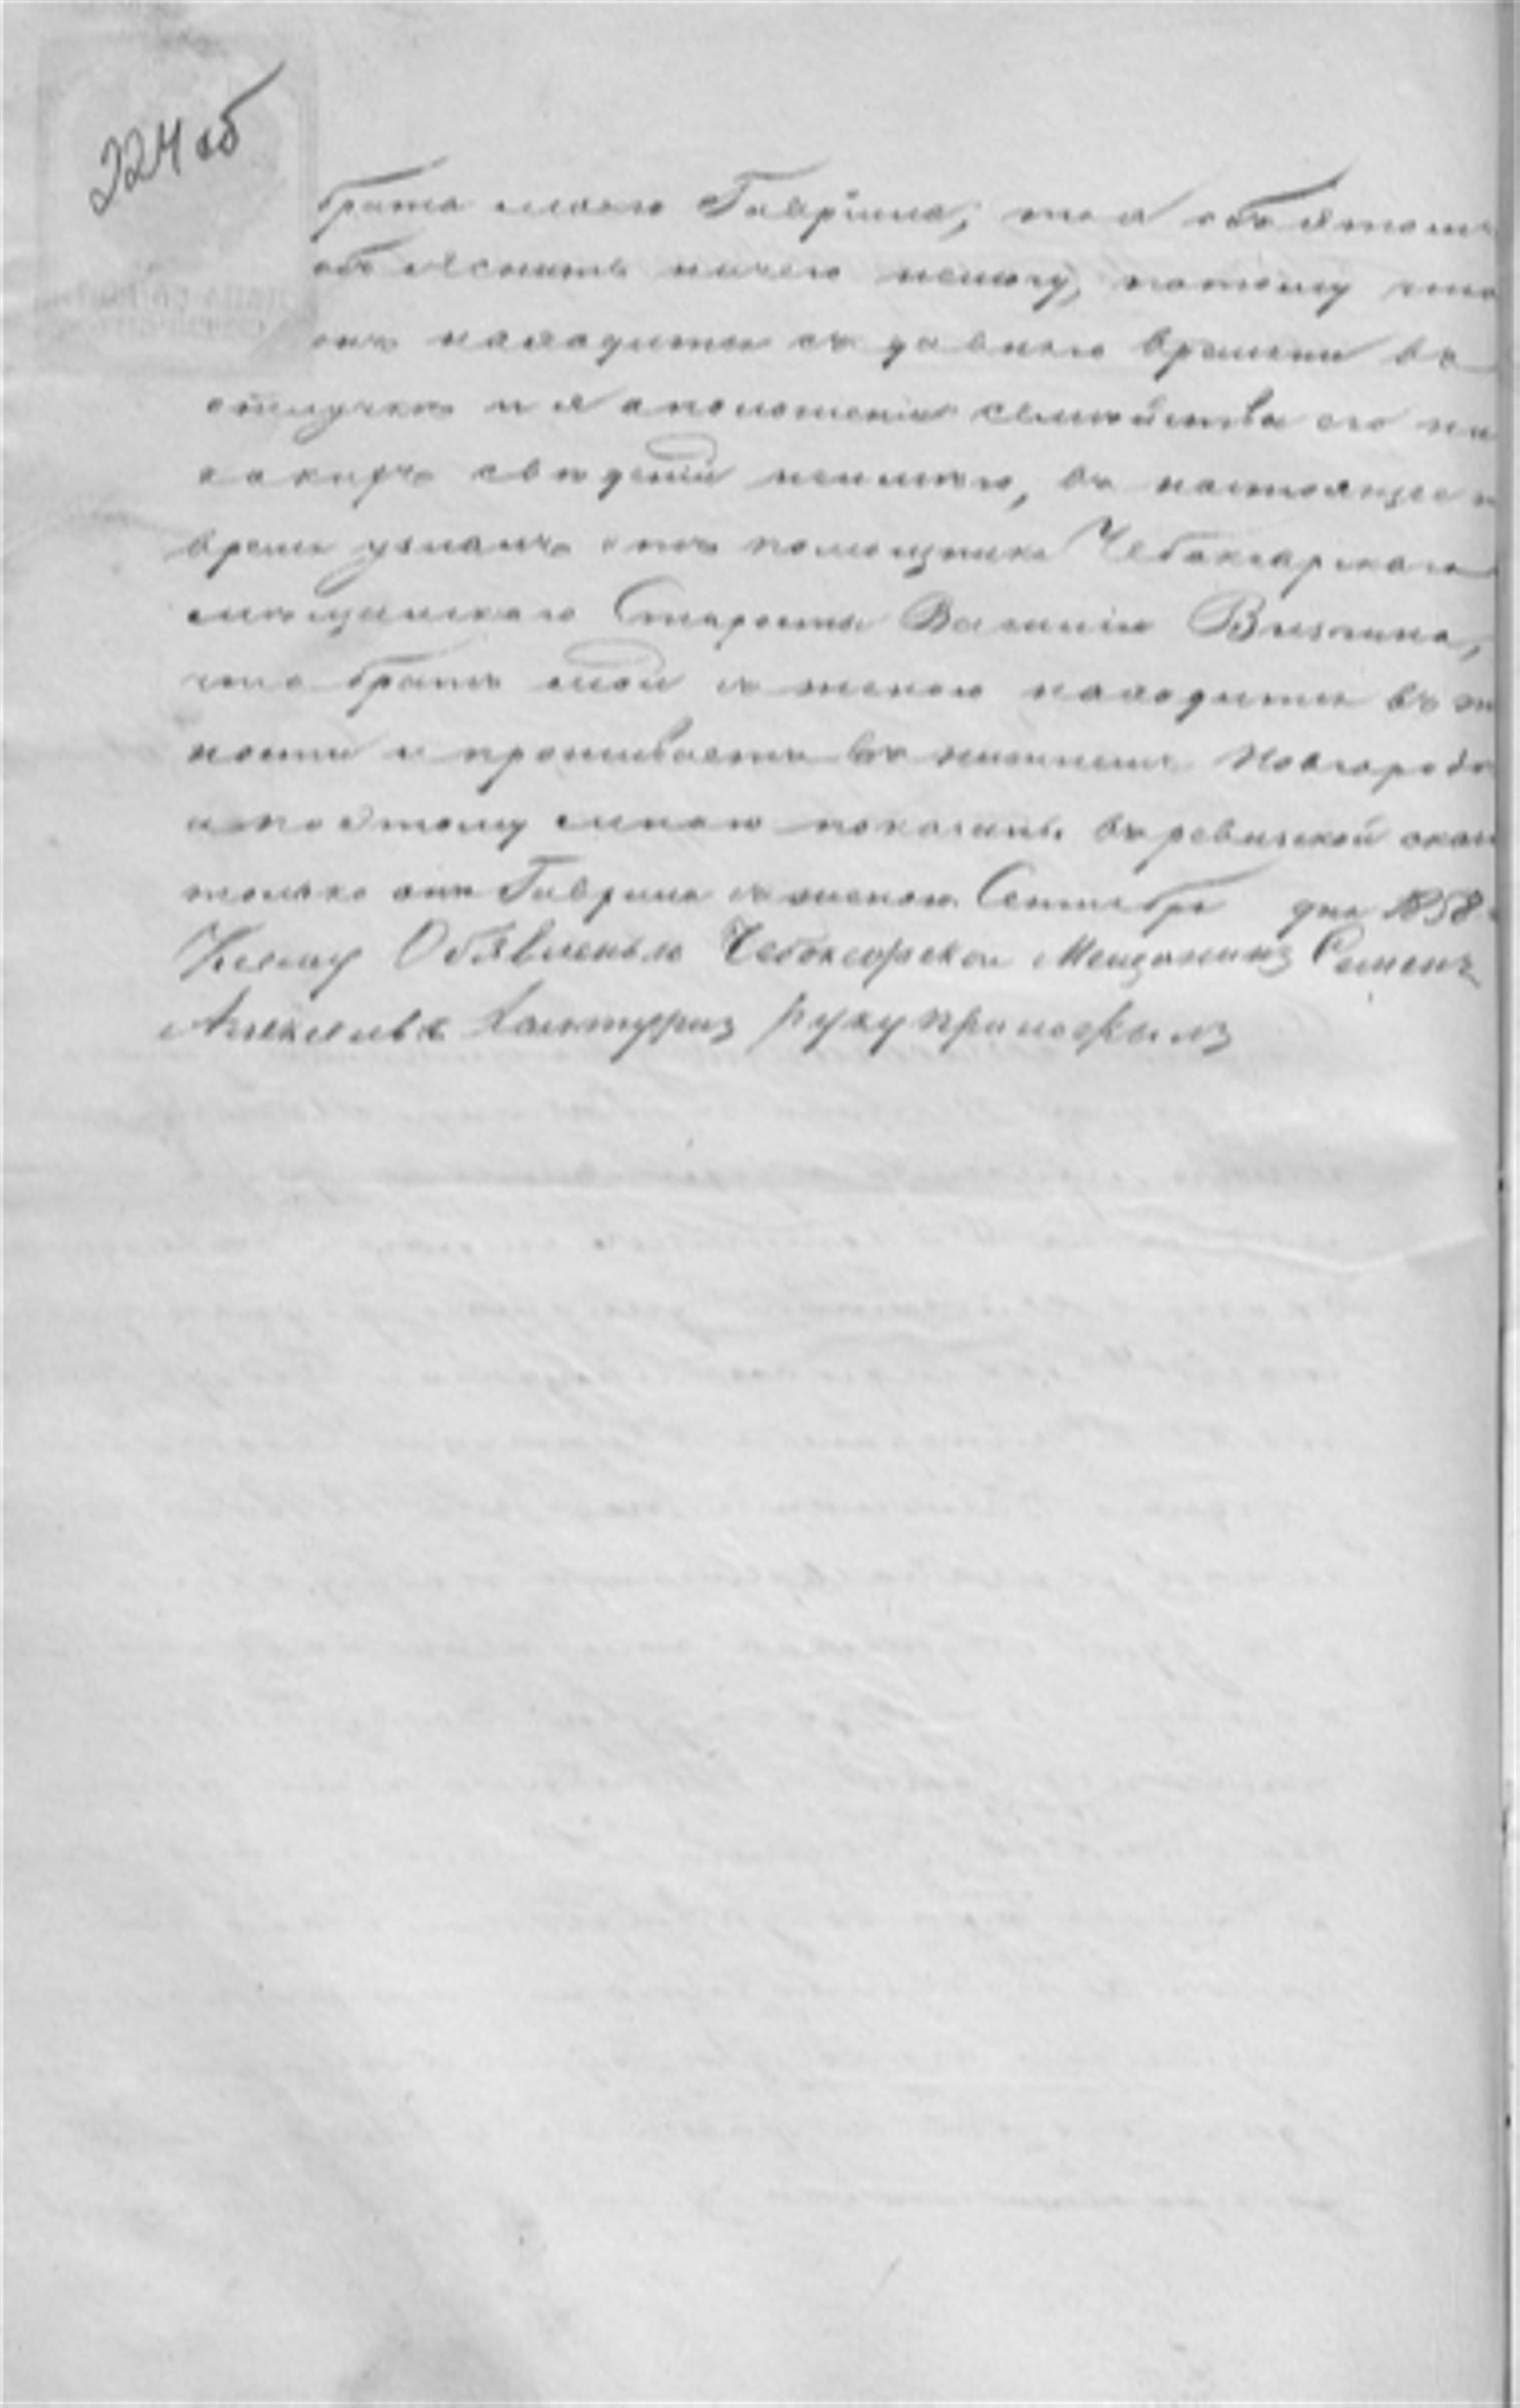 224 об
брата моего Гавриила, то я объ этомъ
объяснить ничего немогу, потому что
онъ находится съ давнего времени въ
отлучкѣ и я ополошеніи семейства его ни
какихъ свѣденій неимею, въ настоящее
время узналъ отъ помощника Чебоксарскаго
мѣщанскаго Старосты Василія
что братъ мой съ женою находится въ
и проживаетъ въ нижнемъ Новгородѣ
и поэтому мною показанъ въ ревизской
только онъ Гаврила съ женою. Сентября дня 1858
Ксему Обявленью Чебоксарской Мещанинъ Семенъ
Алексеевъ руку приложылъ